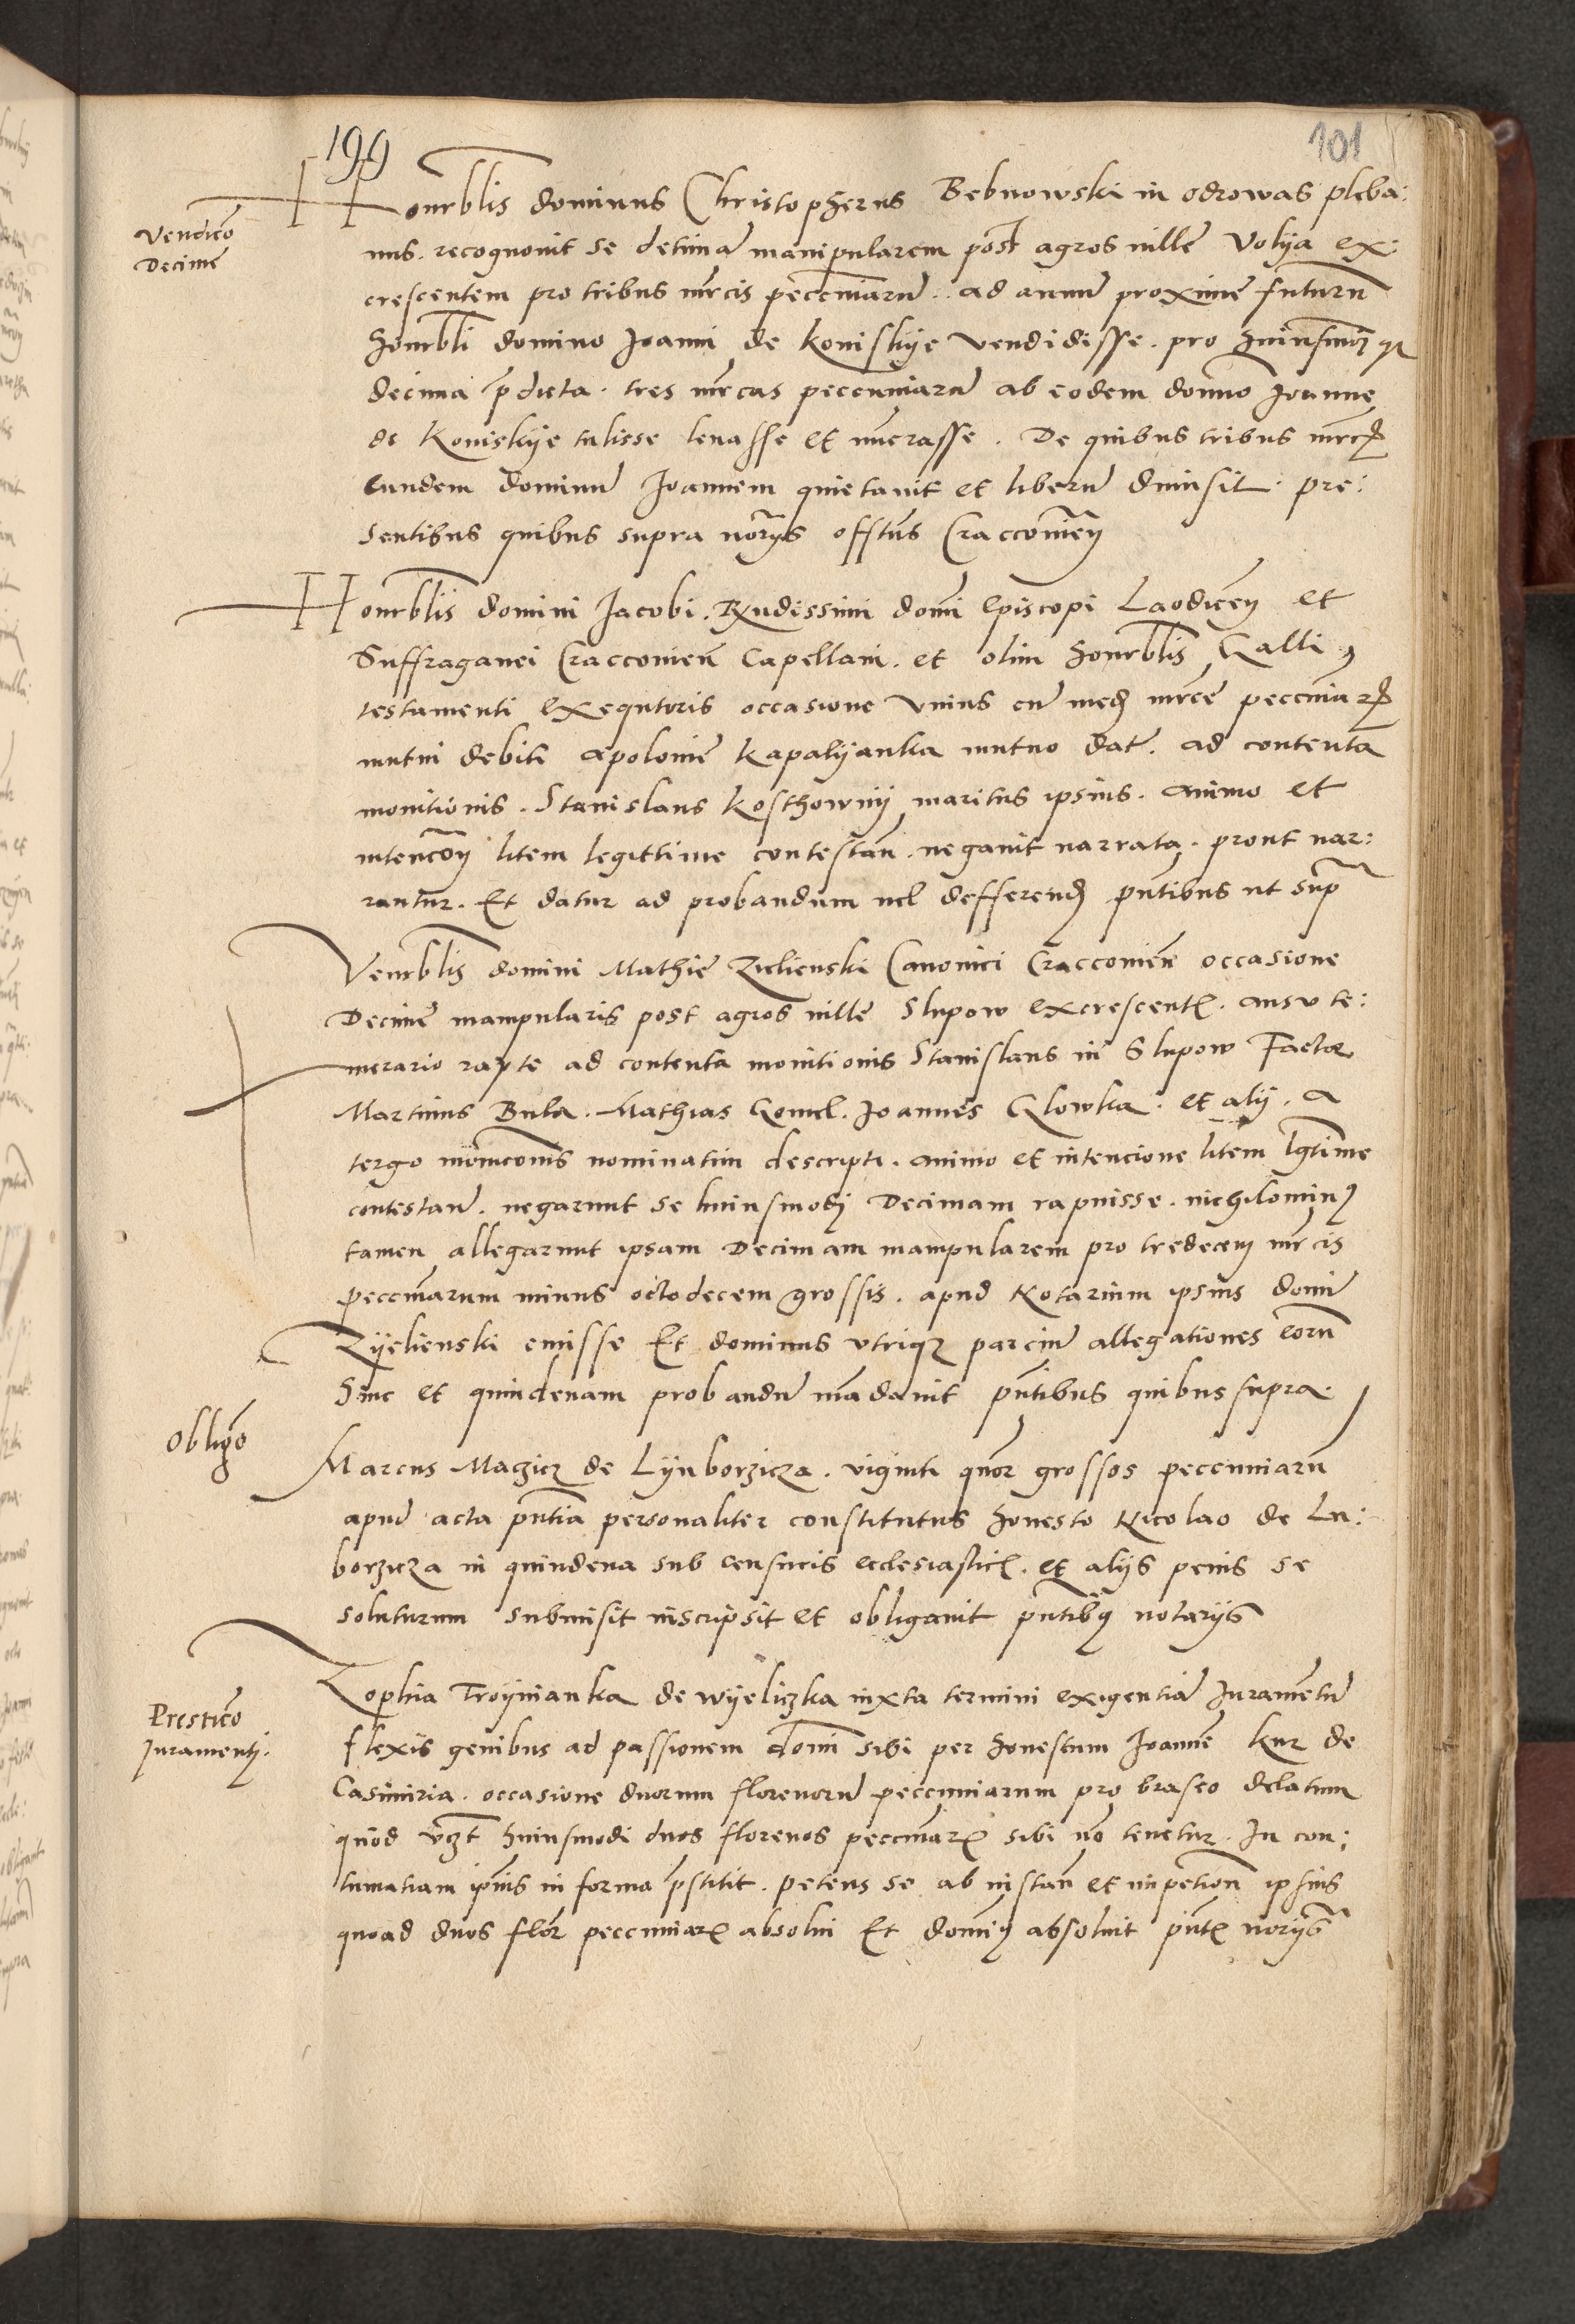 199
101
Vendico
Decime
Honrblis dominus Christopherus Bebnowski in odrowas pleba:
nus. recognovit se decimā manipularem post agros ville Volija ex:
crescentem pro tribus mrcis peccuniarū. ad annū proxime futurū
honrbli domino Joanni de Koniskije vendidisse. pro huiusmoi
decima p̄dicta. tres mrcas peccuniarū ab eodem domno Joanne
de Koniskije tulisse levasse et nūerasse. De quibus tribus mrcis
eundem dominū Joannem quietavit et liberū dimisit. pre:
sentibus quibus supra nōrijs offtus Craccovien̄
Honrblis domini Jacobi. Rndissimi domi Episcopi Laodicen̄ et
Suffraganei Craccovien̄ Capellani. et olim honrblis Galli
testamenti exequtoris occasione unius cū med mrce peccuniarꝝ
mutui debiti apolonie Kapalijanka mutuo dat̄. ad contenta
monitionis. Stanislaus Kosthownij maritus ipsius. animo et
intencōn̄ litem legittime contestan̄. negavit narrata. prout nar:
rantur. Et datur ad probandum vel defferend p̄ntibus ut sup̄
Venrblis domini Mathie Zielienski Canonici Craccovien̄ occasione
Decime manipularis post agros ville Slupow excrescent. ausu te:
merario rapte ad contenta monitionis Stanislaus in Slupow Factor
Martinus Bula. Mathias Gomel. Joannes Glowka. et alij. a
tergo monicōnis nominatim descripti. animo et intencione litem lgtime
contestan̄. negarunt se huiusmodi Decimam rapuisse. nichilominꝰ
tamen allegarunt ipsam Decimam manipularem pro tredecem mrcis
peccuniarum minus octodecem grossis. apud Notarium ipsius domi
Zijelienski emisse Et dominus utriqꝫ parciū allegationes eorū
hinc et quindenam probandū mādavit p̄ntibus quibus supra
Obligō
Marcus Maczicz de Lijuborzicza. viginti quor grossos peccuniarū
apud acta p̄ntia personaliter constitutus honesto Nicolao de Lu:
borzicza in quindena sub censuris ecclesiastic. et alijs penis se
soluturum submisit inscripsit et obligavit p̄ntibꝰ notarijs
Presticō
Juramenti.
Zophia Troijnianka de wijeliczka iuxta termini exigentiā Juramentū
flexis genibus ad passionem domi sibi per honestum Joannē Kur de
Casimiria. occasione duorum florenorū peccuniarum pro braseo delatum
quod vczt huiusmodi duos florenos peccuniarꝝ sibi nō tenetur. In con:
tumatiam ip̄ius in forma p̄stitit. petens se ab instan̄ et impetion̄ ipsius
quoad duos flor peccuniarꝝ absolvi Et dominꝰ absolvit p̄nt nōrijs